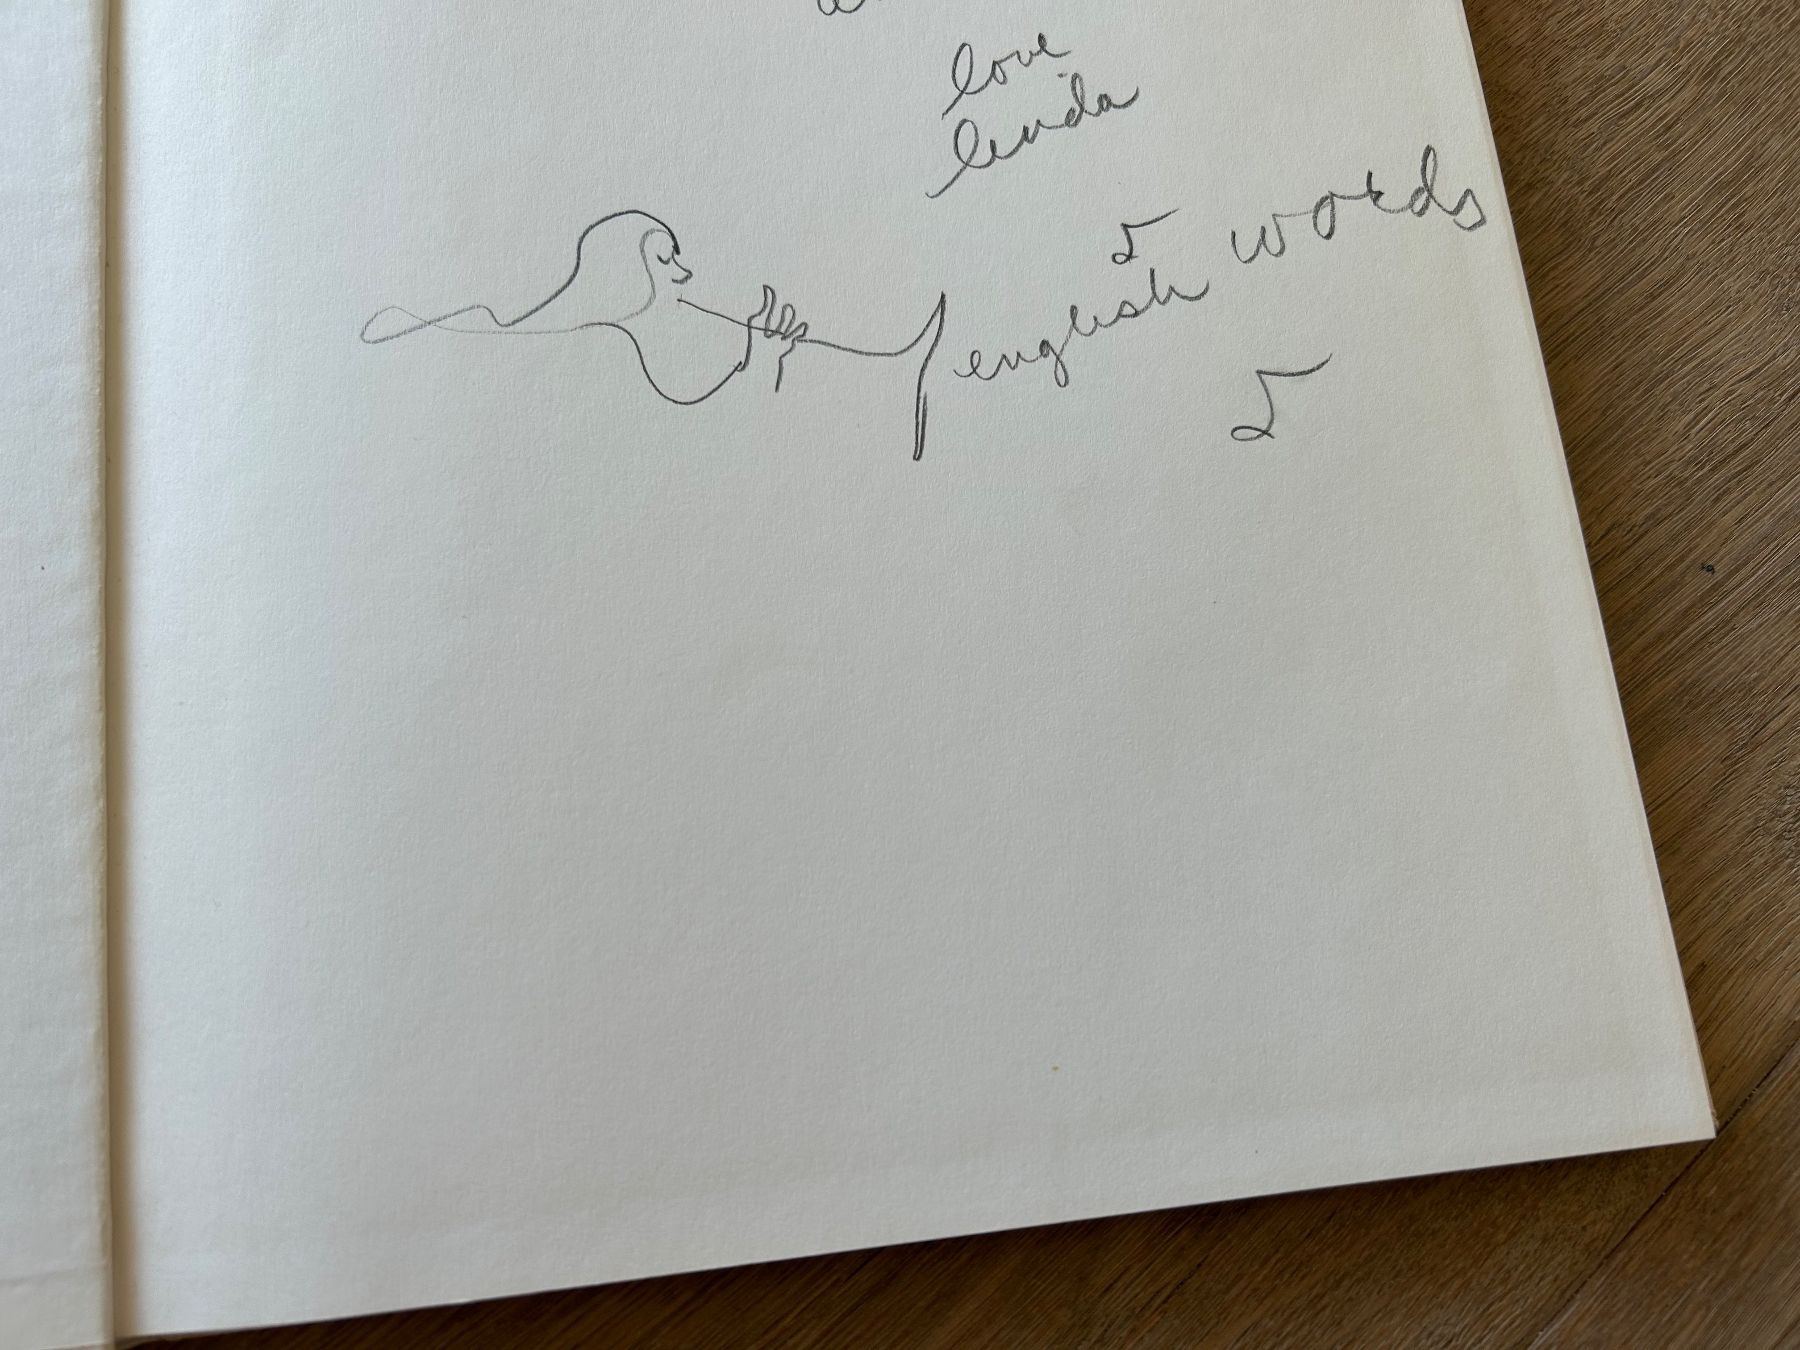 love
linda
english words